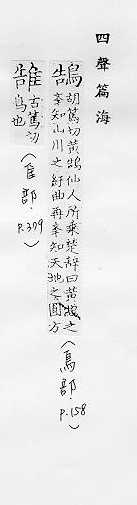 四聲篇海
鵠 胡篤切黃鵠仙人所乘楚辭曰黃鵠之
一舉知山川之紆曲再舉知天地之圓方
(鳥部,p.158)
䧼 古篤切
鳥也
(隹部,p.309)